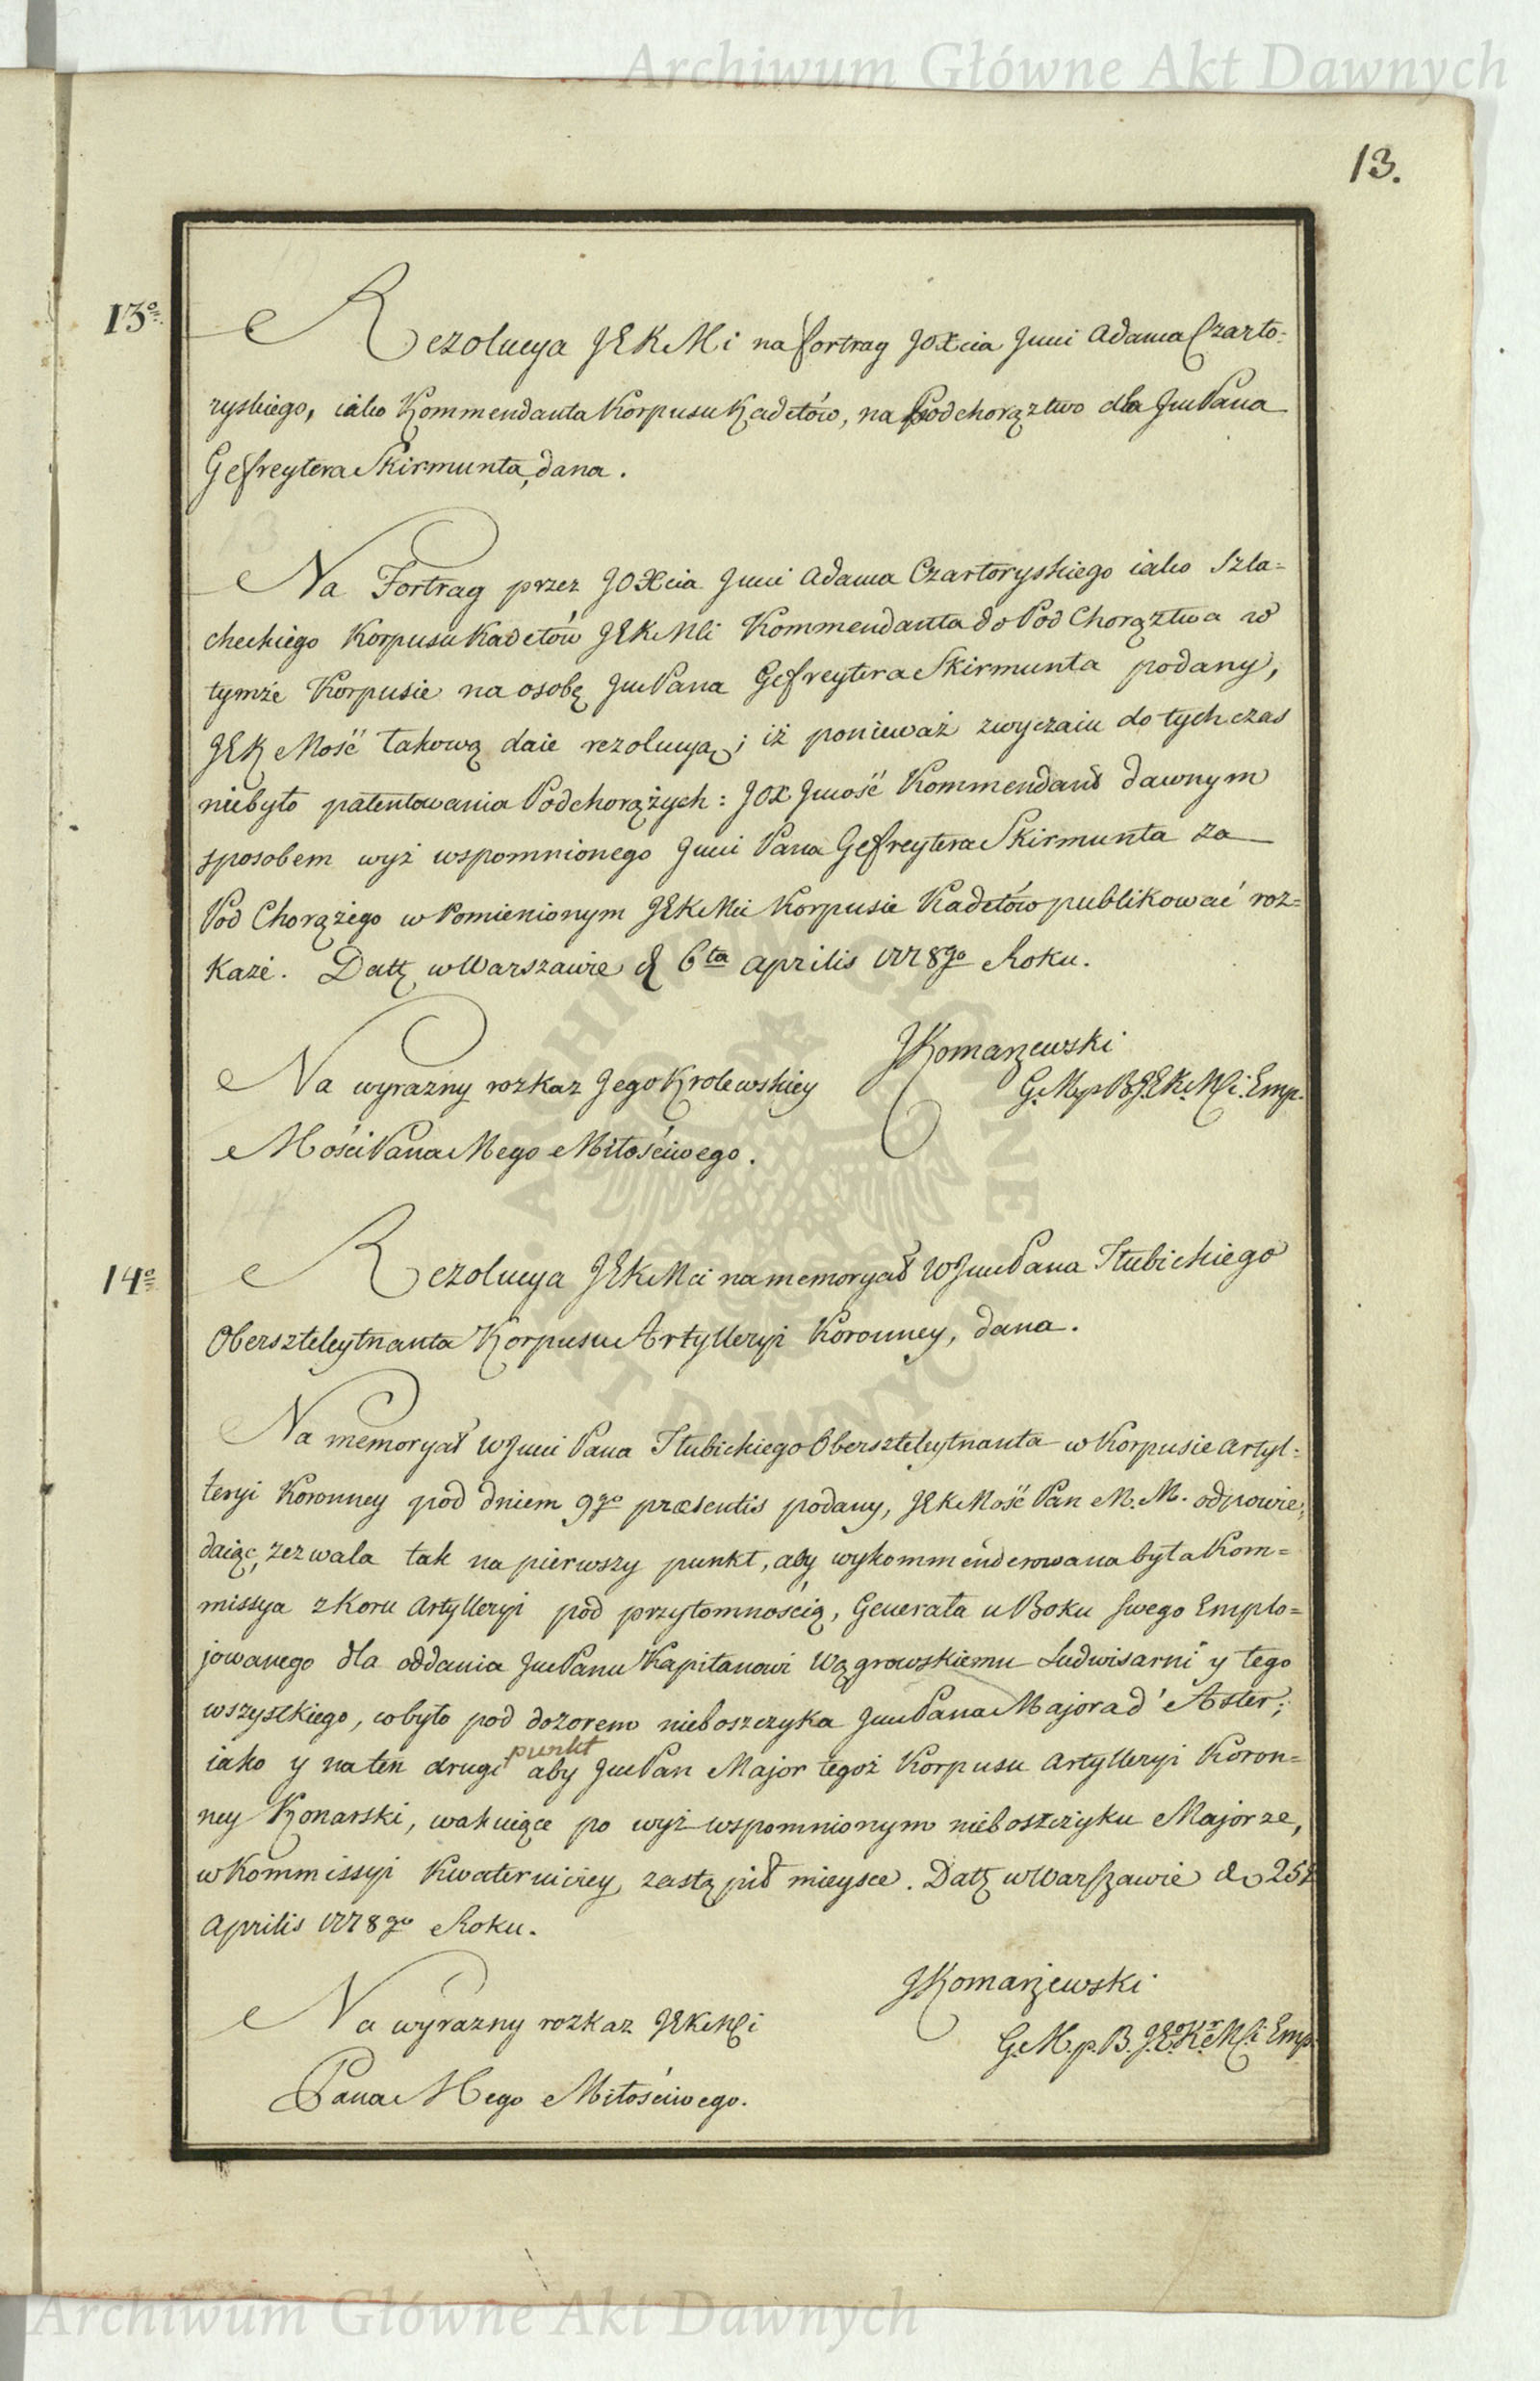 Archiwum Główne Akt Dawnych
13.
13o
Rezolucya JEKMci na fortrag JOXcia Jmci Adama Czarto-
ryskiego, iako Kommendanta Korpusu Kadetów, na Podchorąztwo dla JmPana
Gefreytera Skirmunta, dana.
Na Fortrag przez JOXcia Jmci Adama Czartoryskiego iako Szla=
checkiego Korpusu Kadetów JEKMci Kommendanta do Pod Chorąztwa w
tymże Korpusie na osobę JmPana Gefreytera Skirmunta podany,
JEK Mość takową daie rezolucyą; iż ponieważ zwyczaiu do tych czas
niebyło patentowania Podchorążych: JOX Jmość Kommendant dawnym
sposobem wyż wspomnionego Jmci Pana Gefreytera Skirmunta za
Pod Chorążego w Pomienionym JEKMci Korpusie Kadetów publikować roz=
każe. Datt w Warszawie d 6ta Aprilis 1778go Roku.
Na wyrazny rozkaz Jego Krolewskiey
Mości Pana Mego Miłościwego.
JKomarzewski
G.M.p.B.J.E.K.Mci. Emp.
14o
Rezolucya JEKMci na memoryał WJmPana Stubickiego
Oberszteleytnanta Korpusu Artylleryi Koronney, dana.
Na memoryał WJmci Pana Stubickiego Oberszteleytnanta w Korpusie Artyl=
leryi Koronney pod dniem 9go præsentis podany, JEKMość Pan M. M. odpowie,
daiąc, zezwala tak na pierwszy punkt, aby wykommenderowana była Kom=
missya z Koru Artylleryi pod przytomnością, Generała u Boku swego Emplo=
jowanego dla oddania JmPanu Kapitanowi Wągrowskiemu Ludwisarni y tego
wszystkiego, co było pod dozorem nieboszczyka JmPana Majora d'Aster;
iako y na ten drugi punkt aby JmPan Major tegoż Korpusu Artylleryi Koron=
ney Konarski, wakuiące po wyż wspomnionym nieboszczyku Majorze,
w Kommissyi Kwaterniczey zastąpił mieysce. Datt w Warszawie d 25t
Aprilis 1778go Roku.
Na wyrazny rozkaz JEKMci
Pana Mego Miłościwego.
JKomarzewski
G.M.p.B.J.E.K.Mci Emp.
Archiwum Główne Akt Dawnych